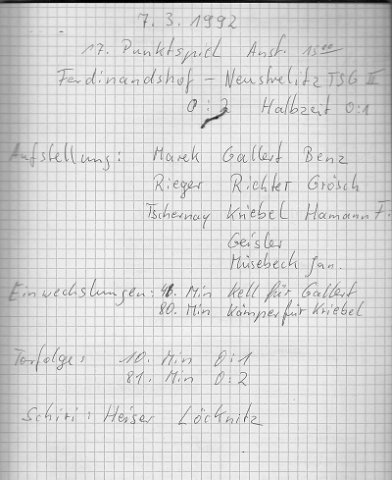 7. 3. 1992
17. Punktspiel Anst. 15⁰⁰
Ferdinandshof – Neustrelitz TSG II
0 : 2 Halbzeit 0:1
Aufstellung: Marek Gallert Benz
Rieger Richter Grösch
Tschernay Kriebel Hamann F.
Geisler
Müsebeck Jan.
Einwechslungen: 46. Min Kell für Gallert
80. Min Kämper für Kriebel
Torfolge: 10. Min 0:1
81. Min 0:2
Schiri: Heiser Löcknitz